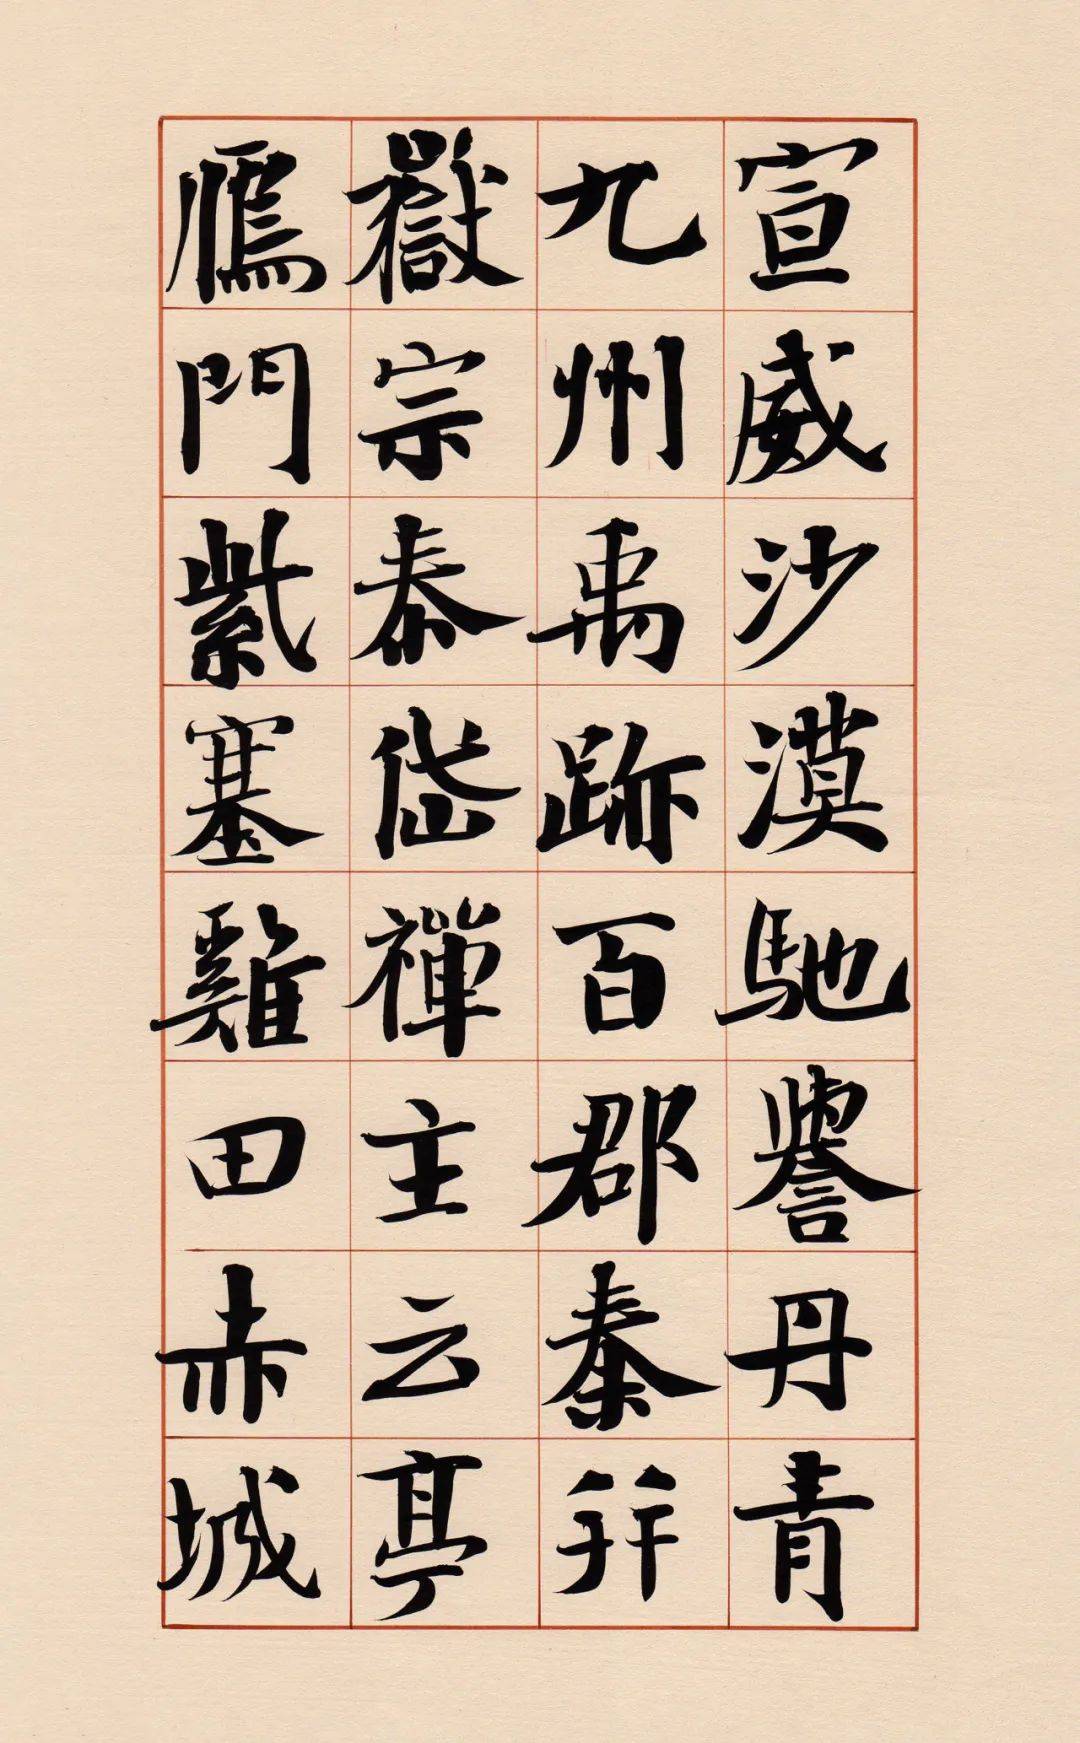 宣威沙漠馳譽丹青
九州禹跡百郡秦并
嶽宗泰岱禪主云亭
雁門紫塞雞田赤城